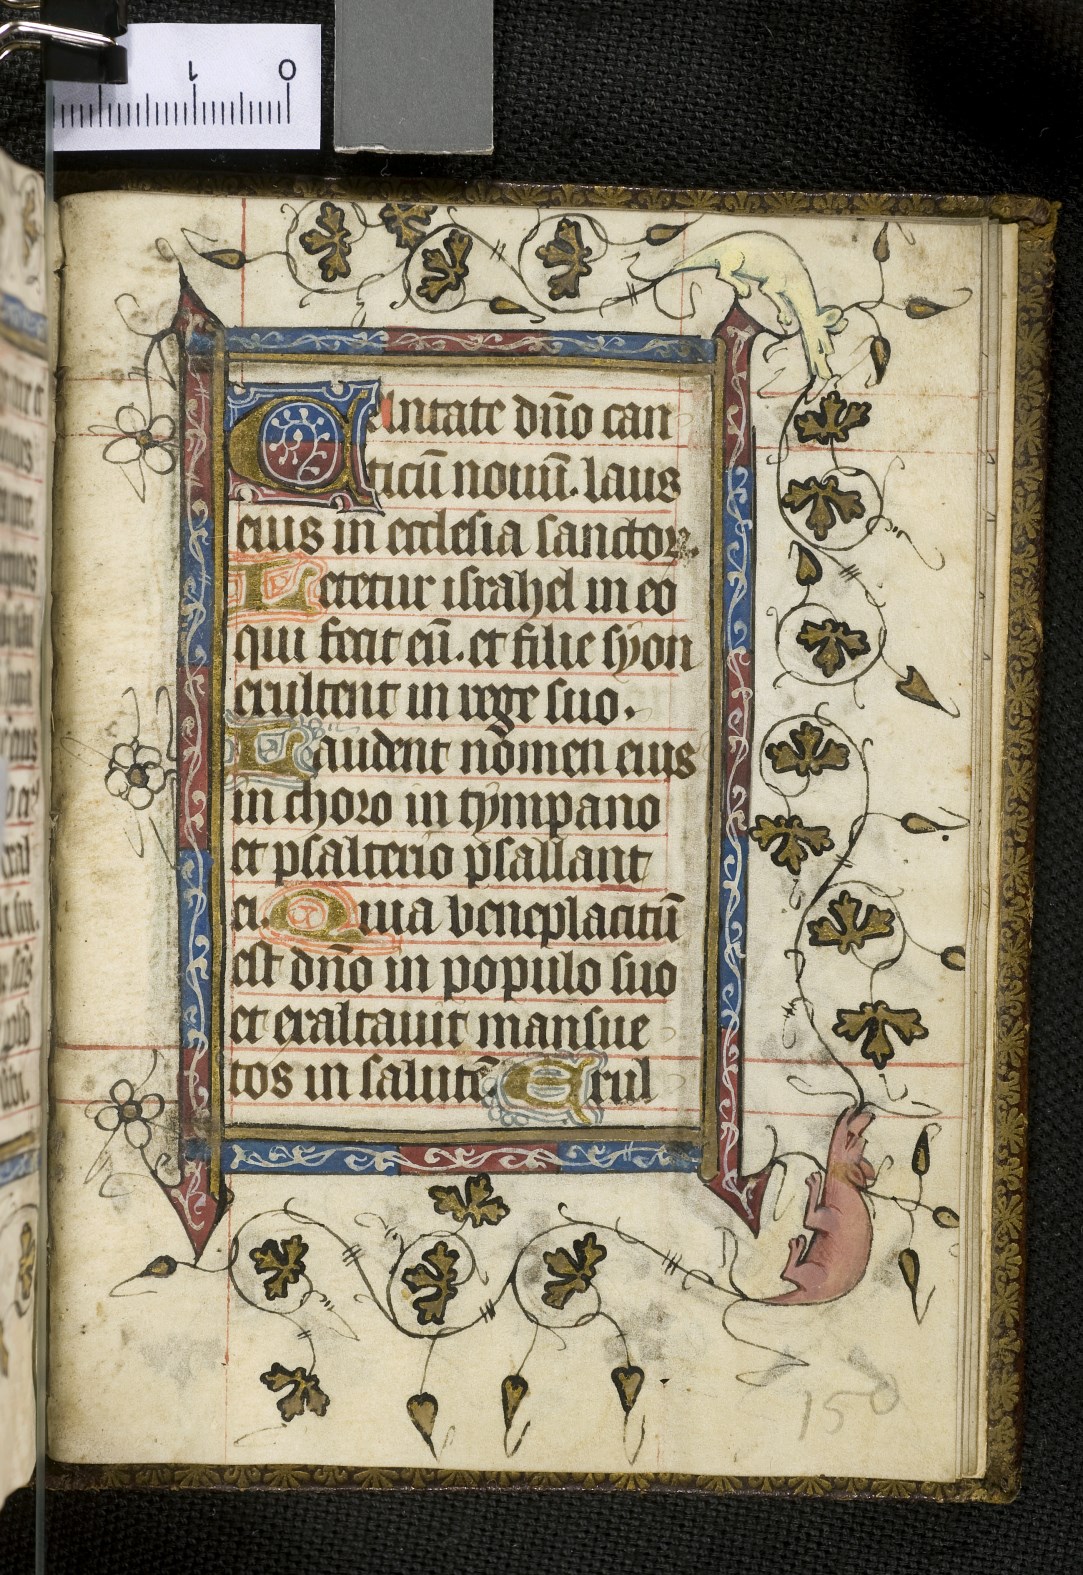 1 0
CAntate dño can
ticū nouū. laus
eius in ecclesia sanctoꝝ.
Letetur israhel in eo
qui fecit eū. et filie syon
exultent in rege suo.
Laudent nomen eius
in choro in tympano
et psalterio psallant
ei. Quia beneplacitū
est dño in populo suo
et exaltauit mansue
tos in salutē Exul
150